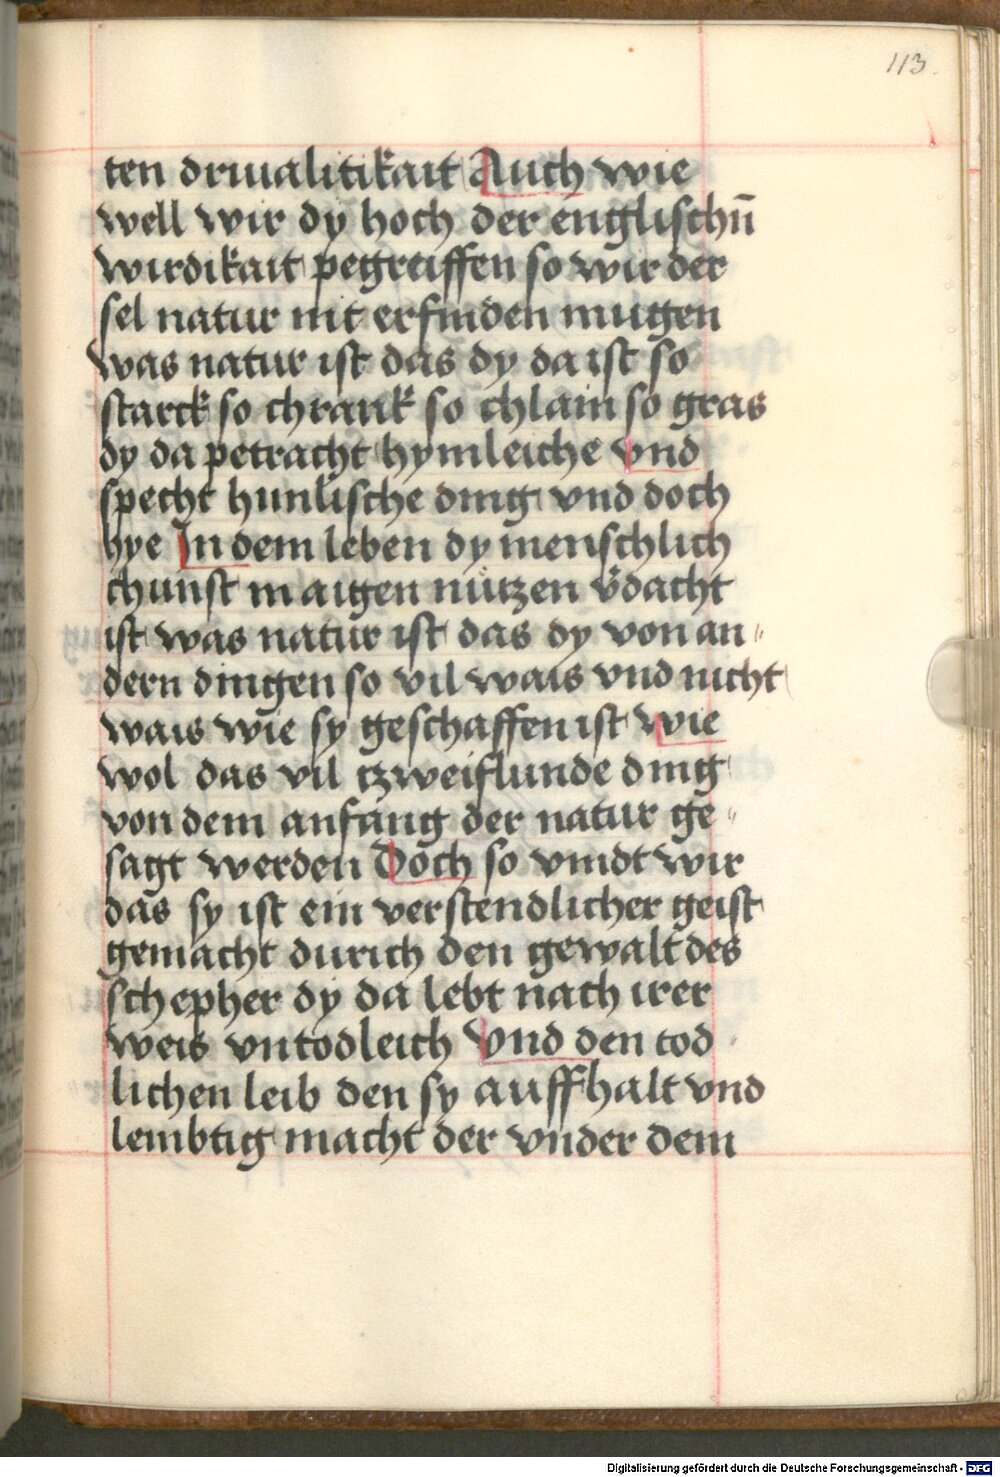 113.
ten driualitikait Auch wie
well wir dy hoch der englischn̄
wirdikait pegreiffen so wir der
sel natur nit erfinden mugen
was natur ist das dy da ist so
starck so chrank so chlain so gras
dy da petracht hymleiche vnd
specht hunlische ding vnd doch
hye In dem leben dy menschlich
chunst in aigen nutzen v̄dacht
ist was natur ist das dy von an〃
dern dingen so vil wais vnd nicht
wais wie sy geschaffen ist wie
wol das vil tzweiflunde ding
von dem anfang der natur ge〃
sagt werden Doch so vindt wir
das sy ist ein verstendlicher geist
gemacht durich den gewalt des
schepher dy da lebt nach irer
weis vntodleich vnd den tod
lichen leib den sy auffhalt vnd
lembtig macht der vnder dem
Digitalisierung gefördert durch die Deutsche Forschungsgemeinschaft - DFG